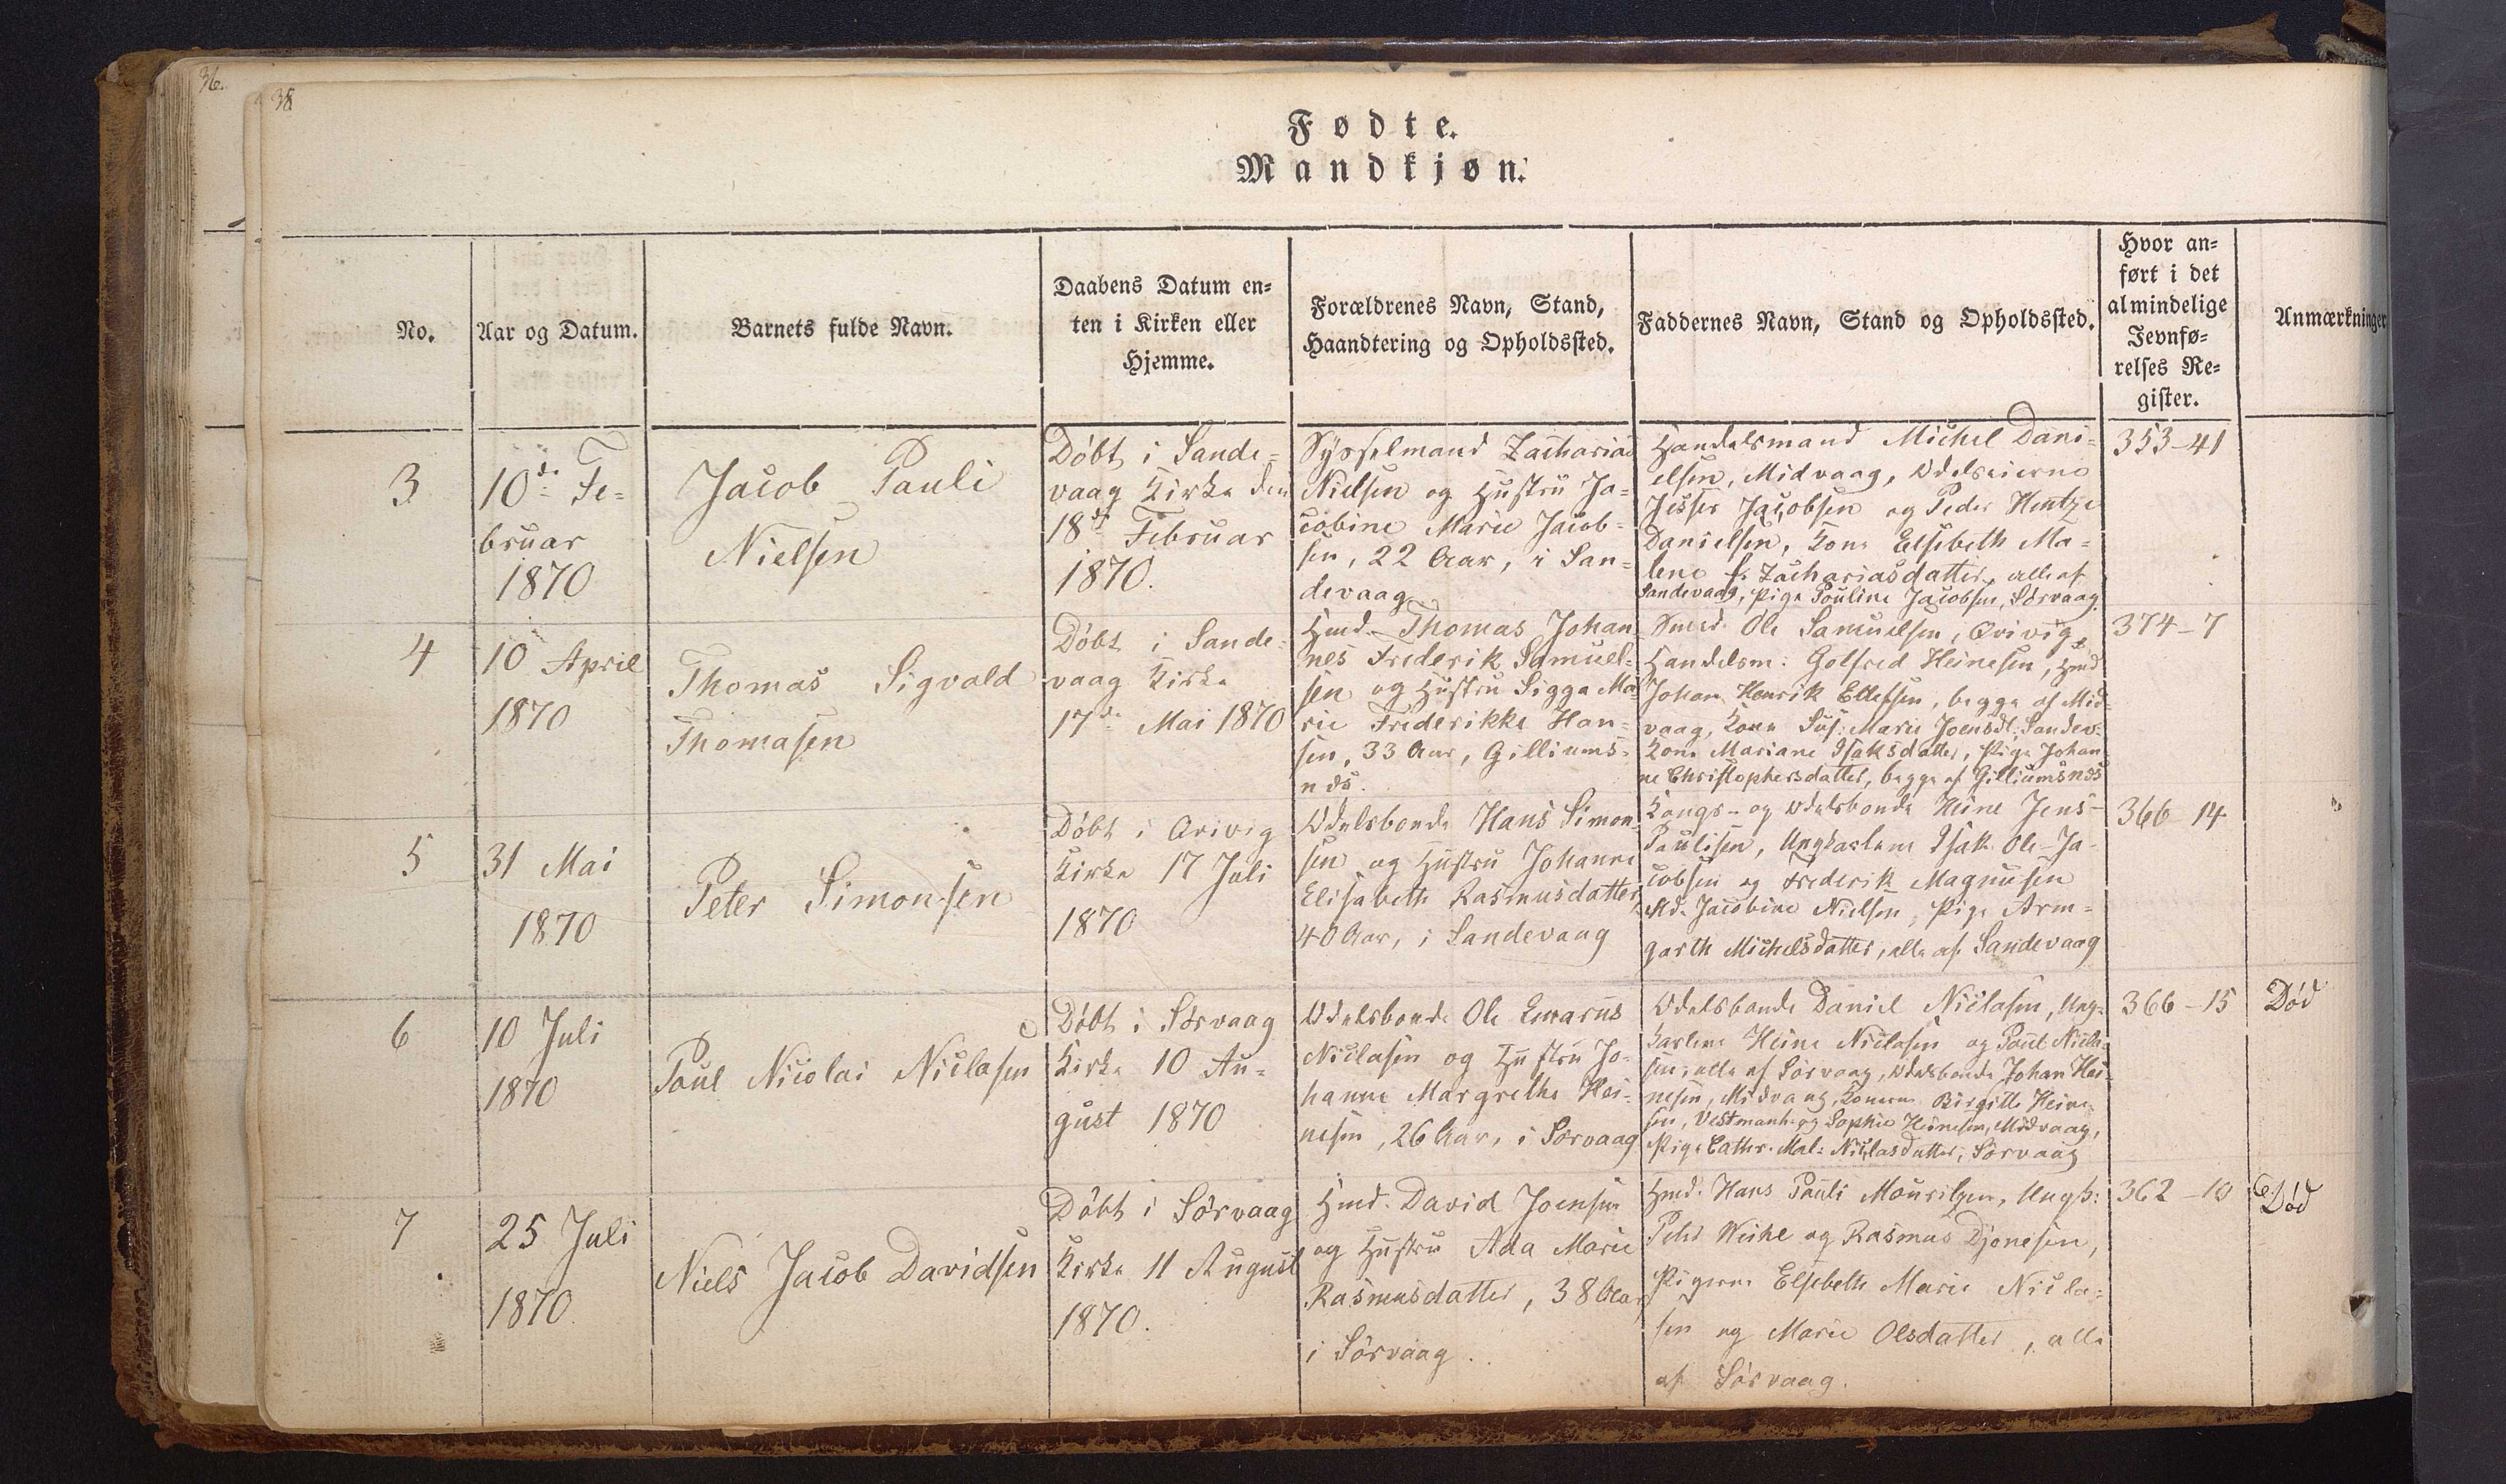 36.
38
Fødte.
Mandkjøn.
No.
Aar og Datum.
Barnets fulde Navn.
Daabens Datum en=
ten i Kirken eller
Hjemme.
Forældrenes Navn, Stand,
Haandtering og Opholdssted.
Faddernes Navn, Stand og Opholdssted.
Hvor an=
ført i det
almindelige
Jevnfø=
relses Re=
gister.
Anmærkninger
3
10de Fe=
bruar
1870
Jacob Pauli
Nielsen
Døbt i Sande=
vaag Kirke den
18de Februar
1870.
Sysselmand Zacharias
Nielsen og Hustru Ja=
cobine Marie Jacob=
sen, 22 Aar, i San=
devaag
Handelsmand Michel Dani=
elsen, Midvaag, Odelseierne
Jesper Jacobsen og Peder Hentze
Danielsen, Kone Elsebeth Ma=
lene f. Zachariasdatter, alle af
Sandevaag, Pige Pouline Jacobsen, Sørvaag.
353-41
4
10 April
1870
Thomas Sigvald
Thomasen
Døbt i Sande=
vaag Kirke
17de Mai 1870
Hmd. Thomas Johan
nes Frederik Samuel=
sen og Hustru Sigga Ma=
rie Frederikke Han=
sen, 33 Aar, Gilliums=
næs.
Smed Ole Samuelsen, Qvivig,
Handelsm: Golfred Heinesen, Hmd
Johan Henrik Ellefsen, begge af Mid=
vaag, Kone Sus: Marie Joensdt: Sandev:
Kone Mariane Isaksdatter, Pige Johan
ne Christophersdatter, begge af Gilliumsnæs
374-7
5
31 Mai
1870
Peter Simonsen
Døbt i Qvivig
Kirke 17 Juli
1870
Odelsbonde Hans Simon=
sen og Hustru Johanne
Elisabeth Rasmusdatter,
40 Aar, i Sandevaag
Kongs- og Odelsbonde Heine Jens-
Paulisen, Ungkarlene Isak Ole Ja=
cobsen og Frederik Magnusen
Md. Jacobine Nielsen, Pige Arm=
garth Michelsdatter, alle af Sandevaag
366-14
6
10 Juli
1870
Poul Nicolai Niclasen
Døbt i Sørvaag
Kirke 10 Au=
gust 1870
Odelsbonde Ole
Niclasen og Hustru Jo=
hanne Margrethe Hei=
nesen, 26 Aar, i Sørvaag
Odelsbonde Daniel Niclasen, Ung=
karlene Heine Niclasen og Poul Nicla=
sen, alle af Sørvaag, Odelsbonde Johan Hei=
nesen, Midvaag, Konerne Birgitte Heine
sen, Vestmanh: og Sophie Heinesen, Midvaag,
Pige Cathr. Mal: Niclasdatter, Sørvaag
366-15
Død
7
25 Juli
1870
Niels Jacob Davidsen
Døbt i Sørvaag
Kirke 11 August
1870.
Hmd. David Joensen
og Hustru Ada Marie
Rasmusdatter, 38 Aar,
i Sørvaag.
Hmd. Hans Pauli Mouritzen, Ungk:
Peter Weihe og Rasmus Djonesen,
Pigerne Elsebeth Marie Nicla=
sen og Marie Olsdatter, alle
af Sørvaag.
362-10
Død